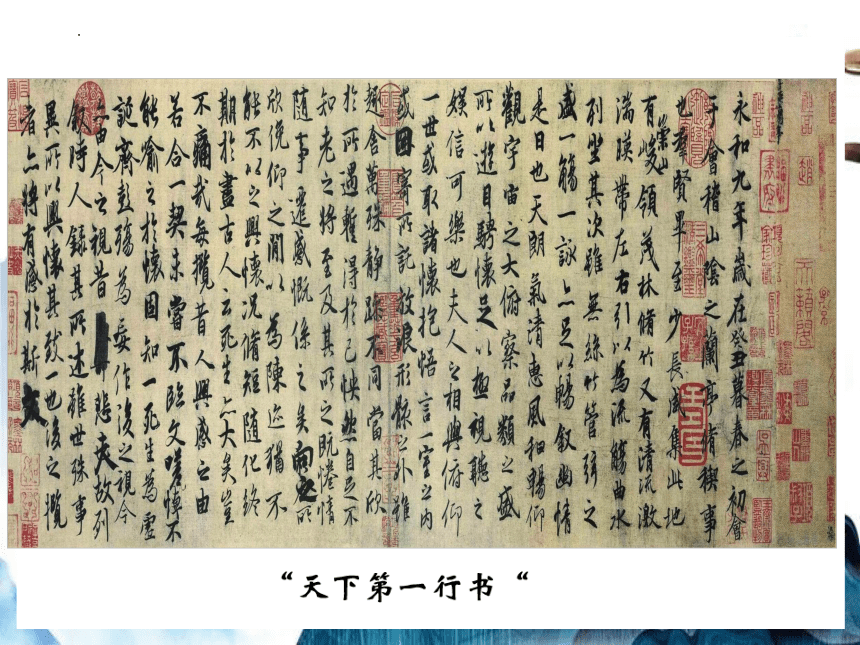 永和九年歲在癸丑暮春之初會
于會稽山陰之蘭亭脩稧事
也羣賢畢至少長咸集此地
有崇山峻領茂林脩竹又有清流激
湍暎帶左右引以為流觴曲水
列坐其次雖無絲竹管弦之
盛一觴一詠亦足以暢敘幽情
是日也天朗氣清惠風和暢仰
觀宇宙之大俯察品類之盛
所以遊目騁懷足以極視聽之
娛信可樂也夫人之相與俯仰
一世或取諸懷抱悟言一室之內
或因寄所託放浪形骸之外雖
趣舍萬殊靜躁不同當其欣
於所遇暫得於己怏然自足不
知老之將至及其所之既惓情
隨事遷感慨係之矣向之所
欣俛仰之閒以為陳迹猶不
能不以之興懷況脩短隨化終
期於盡古人云死生亦大矣豈
不痛哉每攬昔人興感之由
若合一契未嘗不臨文嗟悼不
能喻之於懷固知一死生為虛
誕齊彭殤為妄作後之視今
亦由今之視昔悲夫故列
敘時人錄其所述雖世殊事
異所以興懷其致一也後之攬
者亦將有感於斯文
“天下第一行书“